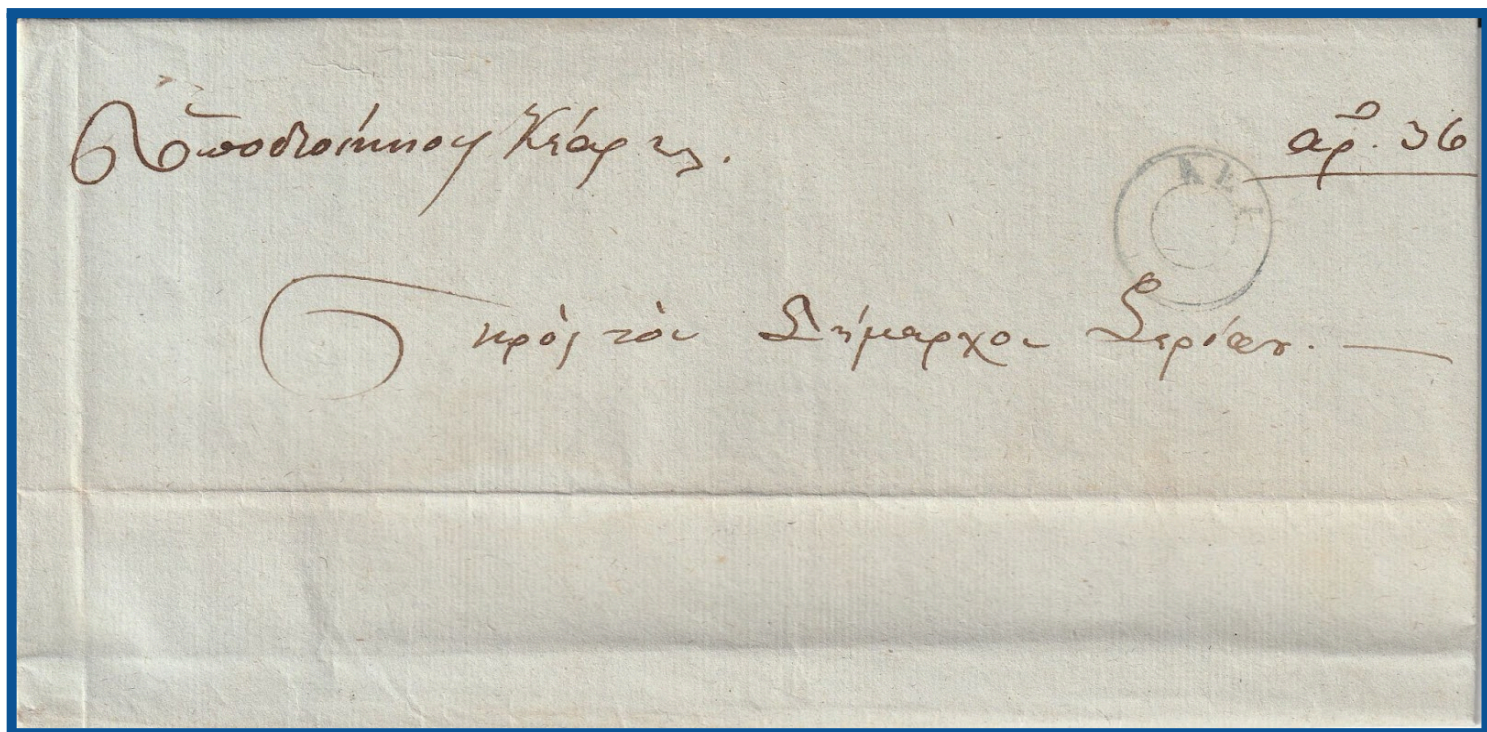 Ὑποδιοίκησις Κέας κτλ.
αρ. 36
ΚΕΑ
πρὸς τὸν Δήμαρχον Σερίφου.